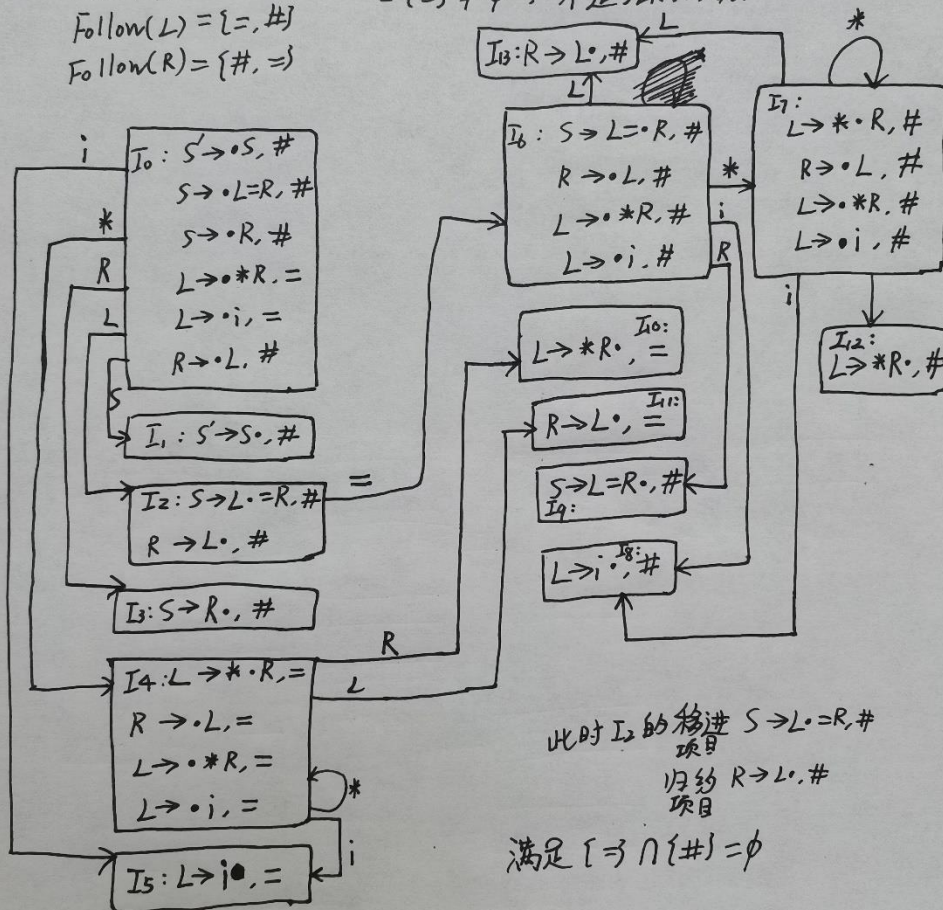 Follow(L) = {=, #}
Follow(R) = {#, =}
I13: R → L•, #
L
L
*
I0: S' → •S, #
S → •L=R, #
S → •R, #
L → •*R, =
L → •i, =
R → •L, #
i
*
R
L
S
I1: S' → S•, #
I2: S → L•=R, #
R → L•, #
=
I3: S → R•, #
I4: L → *•R, =
R → •L, =
L → •*R, =
L → •i, =
R
L
*
i
I5: L → i•, =
I6: S → L=•R, #
R → •L, #
L → •*R, #
L → •i, #
*
i
R
I7:
L → *•R, #
R → •L, #
L → •*R, #
L → •i, #
i
I12:
L → *R•, #
I10:
L → *R•, =
I11:
R → L•, =
S → L=R•, #
I9:
I8:
L → i•, #
此时 I2 的移进项目 S → L•=R, #
归约项目 R → L•, #
满足 {=} ∩ {#} = ϕ